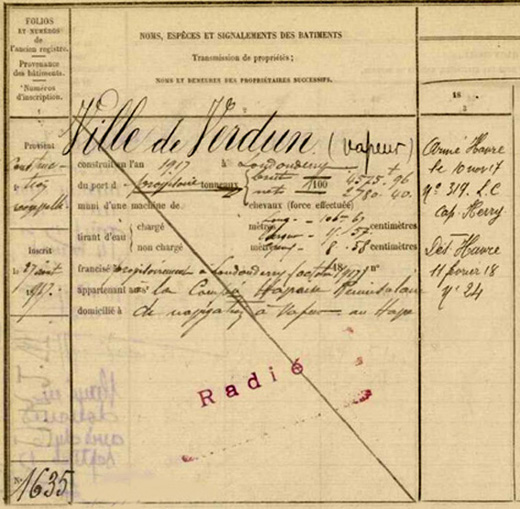 FOLIOS
ET NUMÉROS
de
l'ancien registre.
Provenance
des bâtiments.
Numéros
d'inscription.
NOMS, ESPÈCES ET SIGNALEMENTS DES BATIMENTS
Transmission de propriétés;
NOMS ET DEMEURES DES PROPRIÉTAIRES SUCCESSIFS.
18
2
Ville de Verdun (vapeur)
Provient
construit en l'an 1917 à Londonderry
du port de tonneaux brut 4575 96
/100 net 2780.40
muni d'une machine de chevaux (force effectuée)
long. 106 67
tirant d'eau
chargé mètres 15 57 centimètres
non chargé mètres 8.58 centimètres
Inscrit
le 27 août
1917.
francisé provisoirement à Londonderry 18 n°
appartenant à la Compie Havraise Péninsulaire
domicilié à de navigation à vapeur au Havre
Radié
N° 1635
Armé Havre
le 10 nov 17
N° 319. L.C
Cap. Herry
Dés. Havre
11 février 18
N° 24